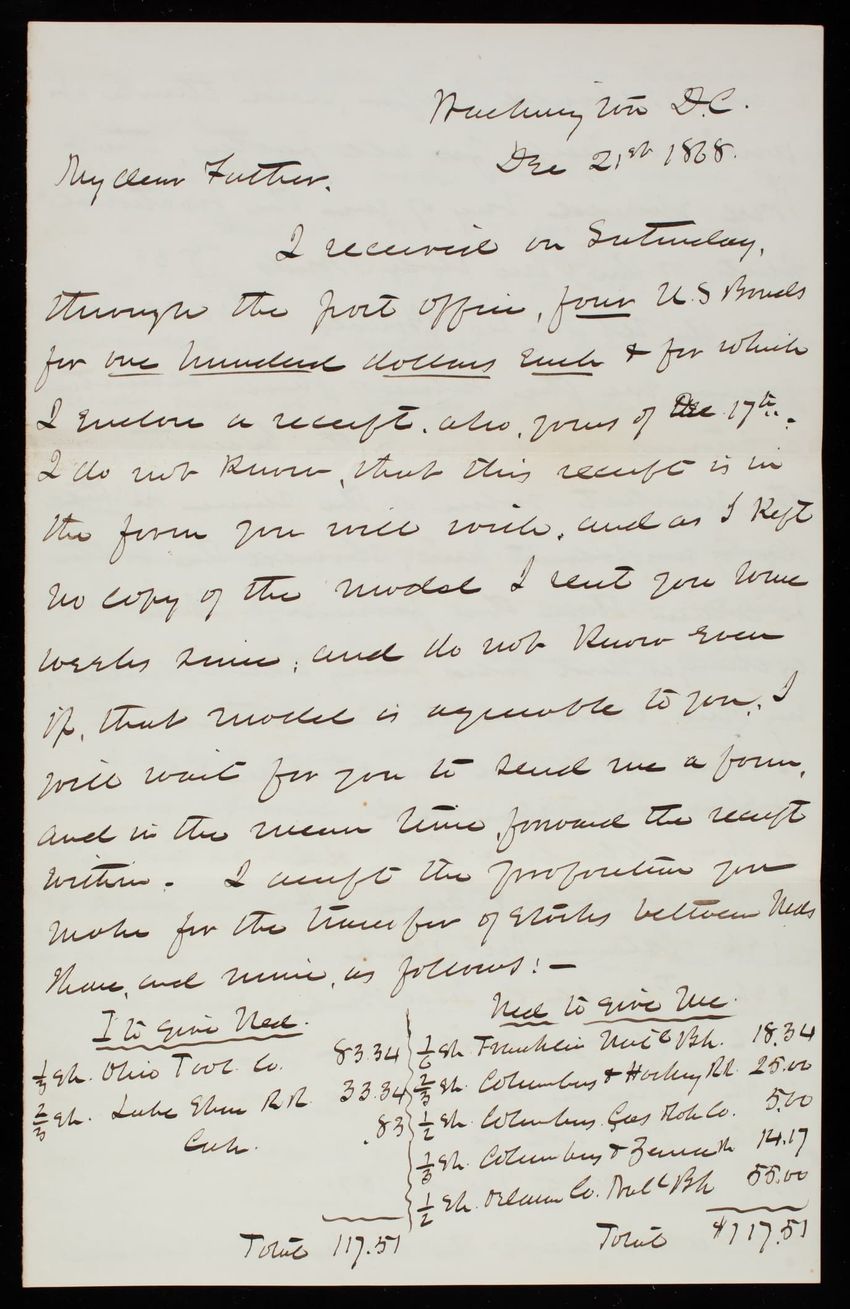 Washington D.C.
Dec 21st 1868.
My dear Father.
I received on Saturday,
through the post office, four U.S Bonds
for one hundred dollars each & for which
I enclose a receipt. also, yours of Dec 17th.
I do not know, that this receipt is in
the form you will wish, and as I kept
no copy of the model I sent you some
weeks since, and do not know even
if, that model is agreeable to you, I
will wait for you to send me a form,
and in the mean time, forward the receipt
within. I accept the proposition you
make for the transfer of stocks between Neds
share, and mine, as follows:—
I to give Ned.
1/3 Sh. Ohio Tool Co. 83.34
2/3 Sh. Lake Shore R R 33.34
Cash. .83
Total 117.51
Ned to give Me.
1/6 Sh. Franklin Natl Bk. 18.34
2/3 Sh. Columbus & Hocking Rd. 25.00
1/2 Sh. Columbus Gas Co. 5.00
1/3 Sh. Columbus & Xenia R 14.17
1/2 Sh. Co. Natl Bk 55.00
Total $117.51